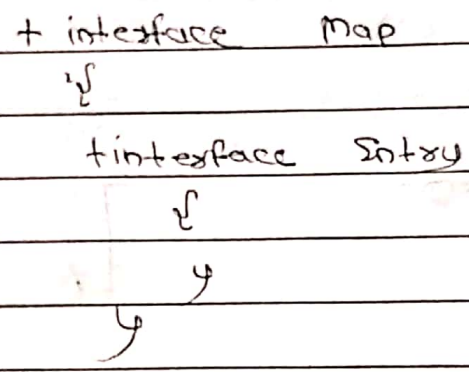 + interface Map
{
+interface Entry
{
}
}